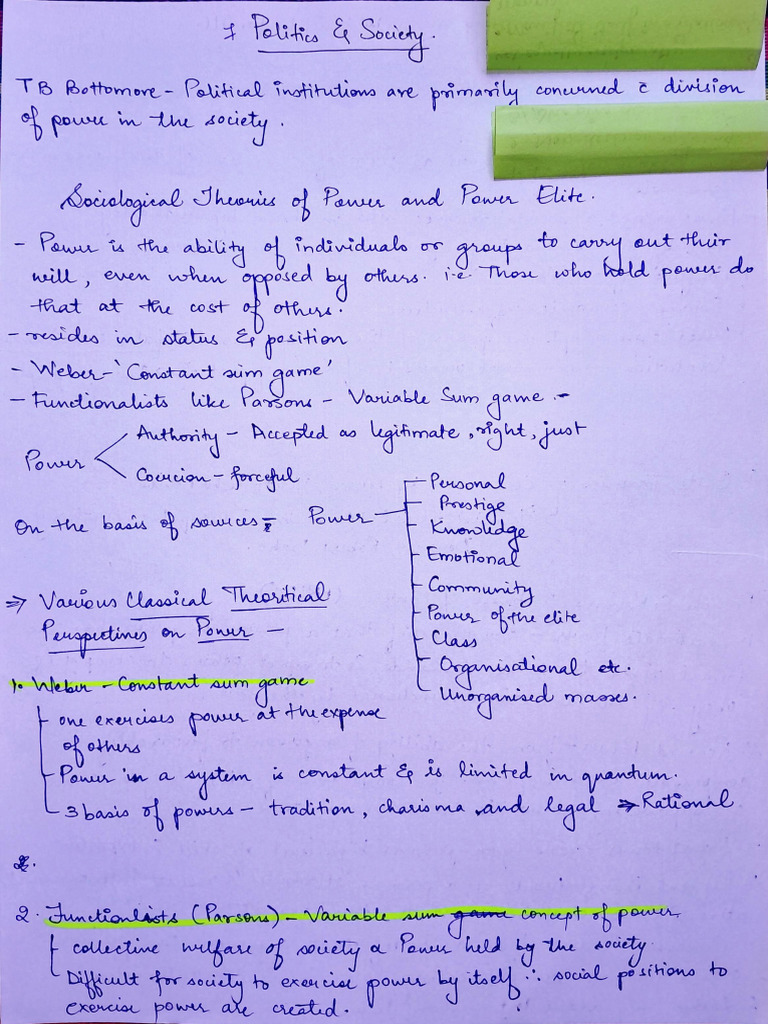 7 Politics & Society.
TB Bottomore - Political institutions are primarily concerned c̄ division
of power in the society.
Sociological Theories of Power and Power Elite.
- Power is the ability of individuals or groups to carry out their
will, even when opposed by others. i.e. Those who hold power do
that at the cost of others.
- resides in status & position
- Weber - 'Constant sum game'
- Functionalists like Parsons - Variable Sum game -
Power
Authority - Accepted as legitimate, right, just
Coercion - forceful
On the basis of sources - Power
Personal
Prestige
Knowledge
Emotional
Community
Power of the elite
Class
Organisational etc.
Unorganised masses.
⇒ Various Classical Theoritical
Perspectives on Power -
1. Weber - Constant sum game
one exercises power at the expense
of others
Power in a system is constant & is limited in quantum.
3 basis of powers - tradition, charisma and legal → Rational
2.
2. Functionalists (Parsons) - Variable sum game concept of power
collective welfare of society α Power held by the society
Difficult for society to exercise power by itself ∴ social positions to
exercise power are created.